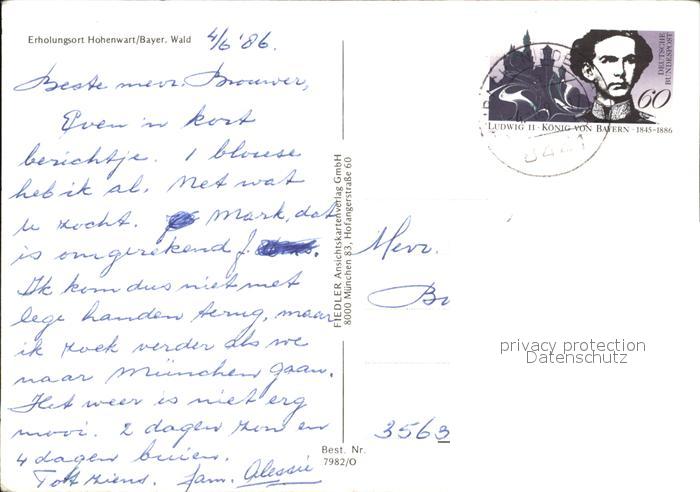 Erholungsort Hohenwart/Bayer. Wald
4/6 '86.
Beste mevr. Brouwer,
Even 'n kort
berichtje. 1 blouse
heb ik al. Net wat
u zocht. Mark, dat
is omgerekend f.
Ik kom dus niet met
lege handen terug, maar
ik zoek verder als we
naar München gaan.
Het weer is niet erg
mooi. 2 dagen zon en
4 dagen buien.
Tot ziens. fam.
FIEDLER Ansichtskartenverlag GmbH
8000 München 83, Hofangerstraße 60
Best. Nr.
7982/O
DEUTSCHE
BUNDESPOST
60
LUDWIG II · KÖNIG VON BAYERN · 1845-1886
Mevr.
Br
3563
privacy protection
Datenschutz